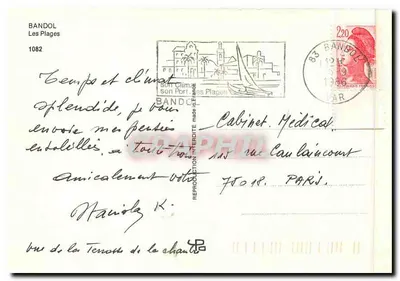 BANDOL
Les Plages
1082
Son Climat
son Port, ses Plages
BANDOL
83 BANDOL
1986
VAR
2,20
Temps et climat
splendide, je vous
envoie mes pensées
ensoleillées. à toute
amicalement votre
REPRODUCTION INTERDITE made in
Cabinet Médical
115 rue Caulaincourt
75018. PARIS.
vue de la Terrasse de la chambre